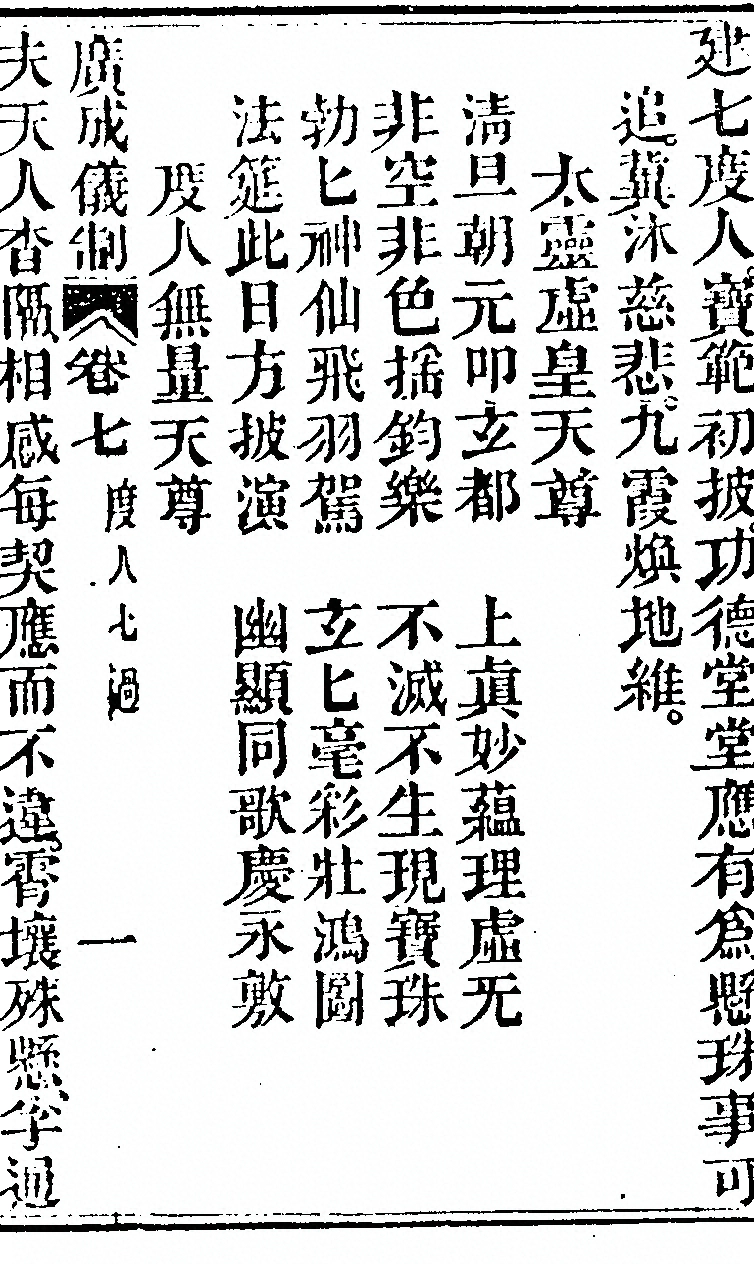 建七度人寶範初披功德堂堂應有爲懸珠事可
追。冀沐慈悲。九霞煥地維。
太靈虛皇天尊
清旦朝元叩玄都　上眞妙蘊理虛无
非空非色揺鈞樂　不滅不生現寶珠
勃匕神仙飛羽駕　玄匕毫彩壯鴻圖
法筵此日方披演　幽顯同歌慶永敷
度人無量天尊
廣成儀制 卷七 度人七過 一
夫天人杳隔相感每契應而不違霄壤殊懸孚通